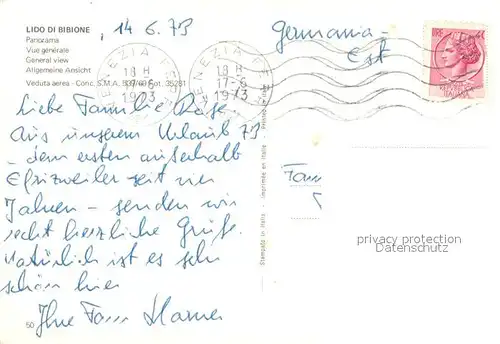 LIDO DI BIBIONE
, 14.6.73
Panorama
Vue générale
General view
Allgemeine Ansicht
Veduta aerea - Conc. S.M.A.
Liebe Familie
Aus unserem Urlaub 73
- dem ersten außerhalb
Efrizweiler seit vier
Jahren - senden wir
recht herzliche Grüße.
Natürlich ist es sehr
schön hier
Ihre Fam
50
VENEZIA FE
18 H
1973
VENEZIA FE
18 H
17-6
1973
Germania-
Est
LIRE
Stampato in Italia - Imprimée en Italie - Printed in Italy
Fam
privacy protection
Datenschutz